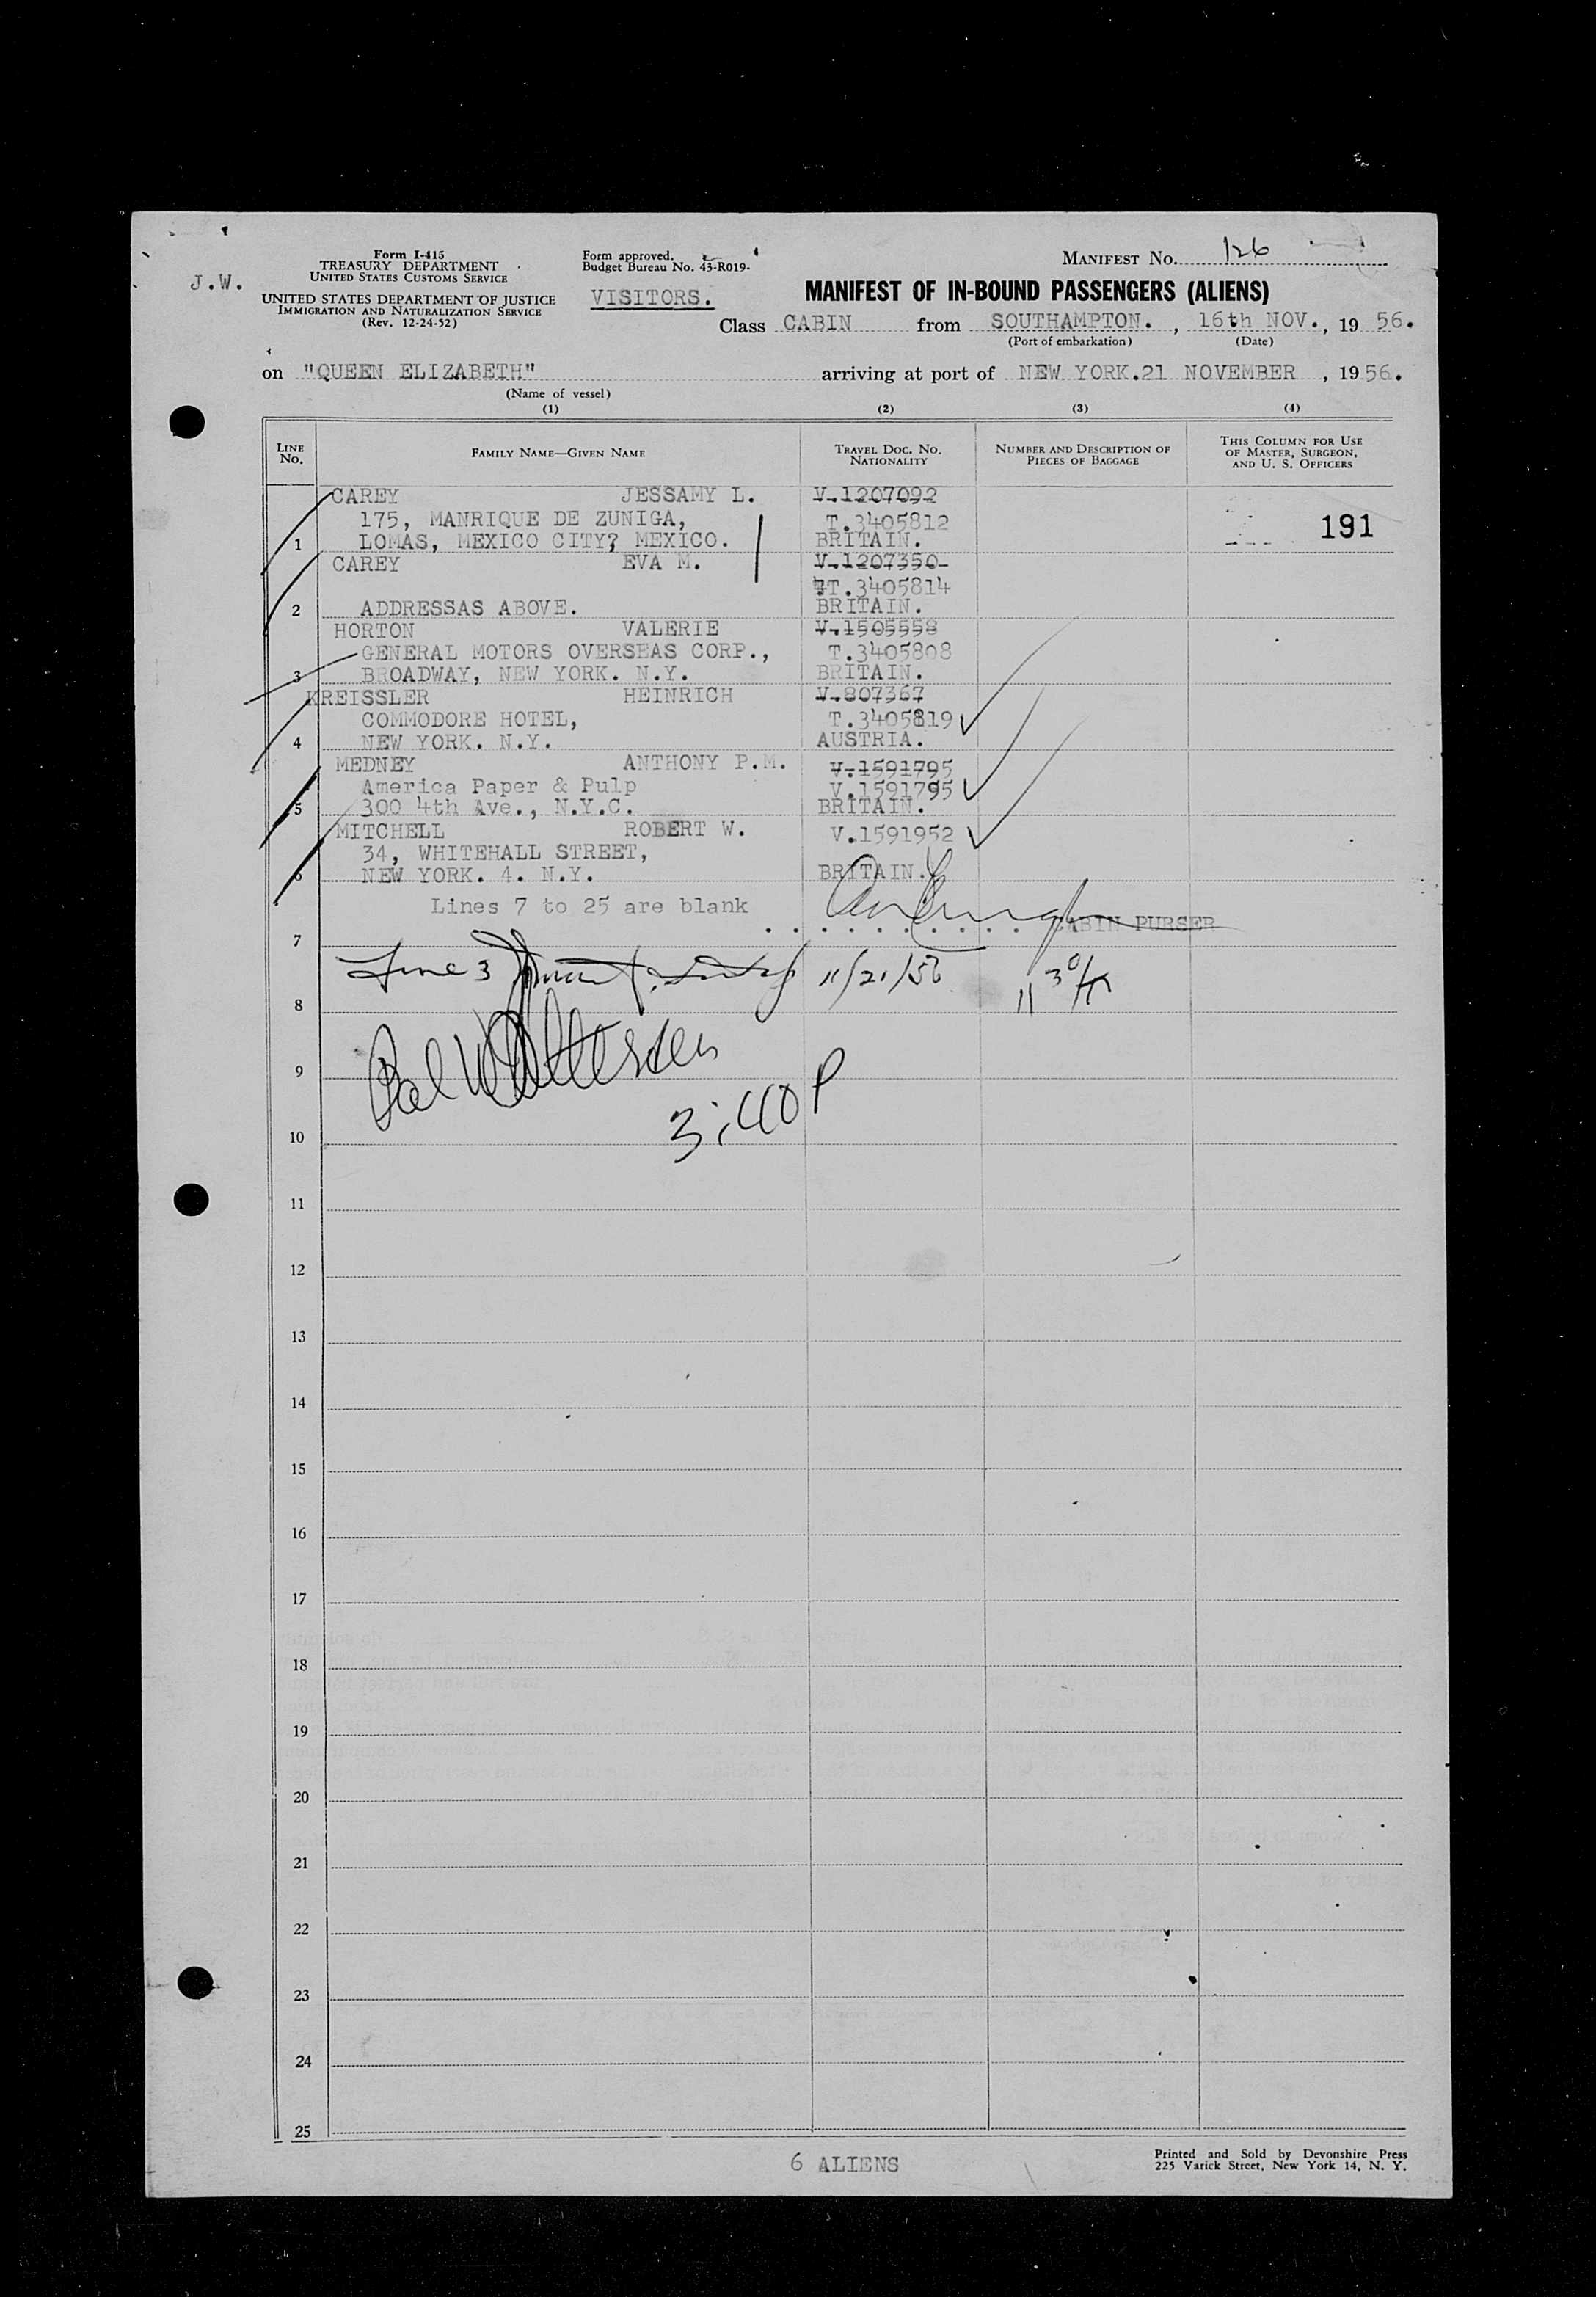 J.W.
Form I-415
TREASURY DEPARTMENT
UNITED STATES CUSTOMS SERVICE
UNITED STATES DEPARTMENT OF JUSTICE
IMMIGRATION AND NATURALIZATION SERVICE
(Rev. 12-24-52)
Form approved.
Budget Bureau No. 43-R019-
VISITORS.
MANIFEST NO. 126
MANIFEST OF IN-BOUND PASSENGERS (ALIENS)
Class CABIN from SOUTHAMPTON. , 16th NOV., 19 56.
(Port of embarkation) (Date)
on "QUEEN ELIZABETH" arriving at port of NEW YORK. 21 NOVEMBER , 19 56.
(Name of vessel)
(1) (2) (3) (4)
LINE NO. FAMILY NAME—GIVEN NAME TRAVEL DOC. NO. NATIONALITY NUMBER AND DESCRIPTION OF PIECES OF BAGGAGE THIS COLUMN FOR USE OF MASTER, SURGEON, AND U. S. OFFICERS
CAREY JESSAMY L. V.1207092
175, MANRIQUE DE ZUNIGA, T.3405812 191
1 LOMAS, MEXICO CITY? MEXICO. BRITAIN.
CAREY EVA M. V.1207350
T.3405814
2 ADDRESSAS ABOVE. BRITAIN.
HORTON VALERIE V.1505558
GENERAL MOTORS OVERSEAS CORP., T.3405808
3 BROADWAY, NEW YORK. N.Y. BRITAIN.
KREISSLER HEINRICH V.807367
COMMODORE HOTEL, T.3405819
4 NEW YORK. N.Y. AUSTRIA.
MEDNEY ANTHONY P.M. V.1591795
America Paper & Pulp V.1591795
5 300 4th Ave., N.Y.C. BRITAIN.
MITCHELL ROBERT W. V.1591952
34, WHITEHALL STREET,
6 NEW YORK. 4. N.Y. BRITAIN.
Lines 7 to 25 are blank
CABIN PURSER
7
Line 3 11/21/56 11 30
8
9
3:40 P
10
11
12
13
14
15
16
17
18
19
20
21
22
23
24
25
6 ALIENS
Printed and Sold by Devonshire Press
225 Varick Street, New York 14, N. Y.